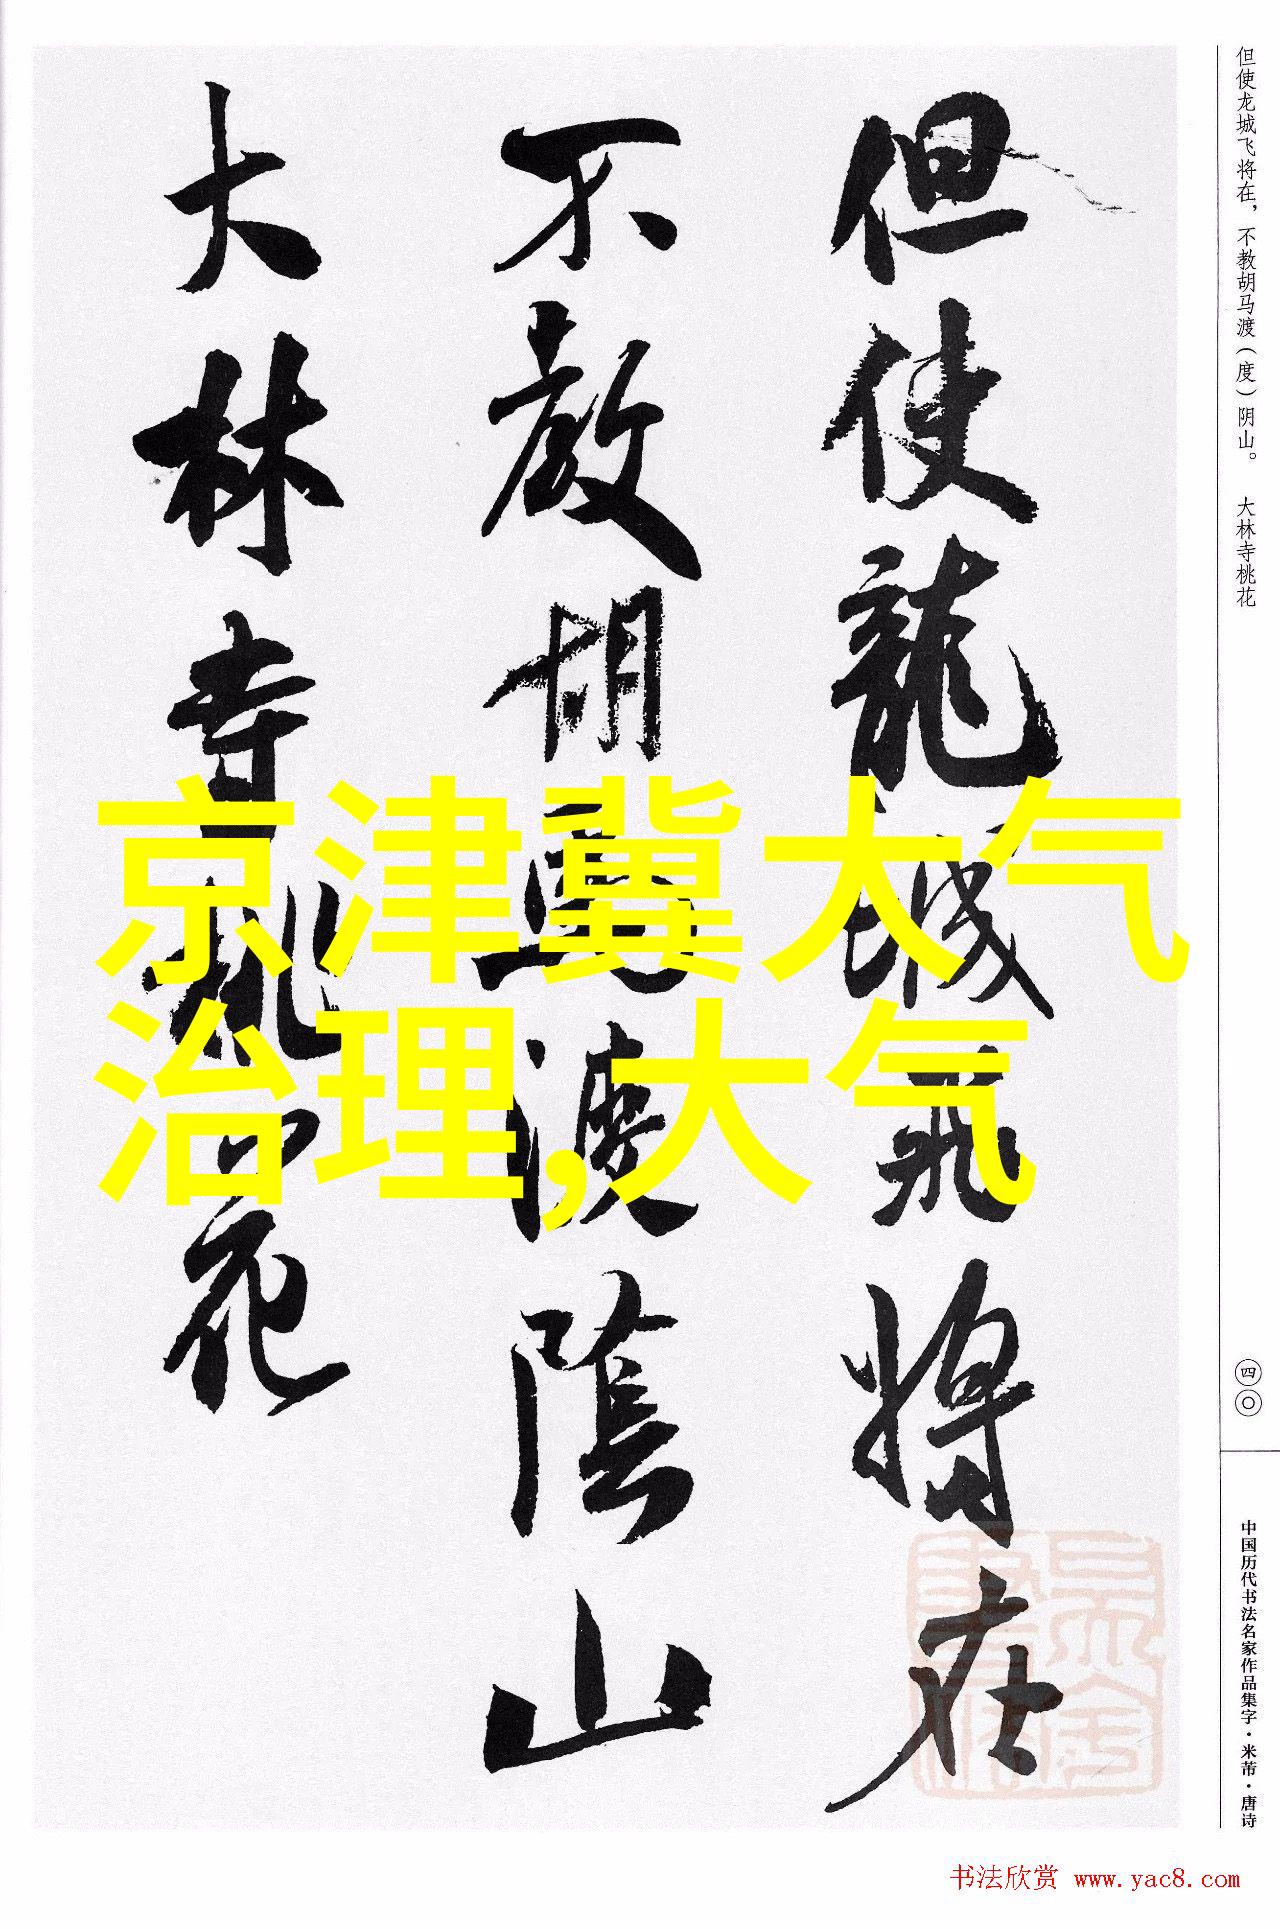 但使龍城飛將在
不教胡馬渡陰山
大林寺桃花
但使龙城飞将在，不教胡马渡（度）阴山。 大林寺桃花
四〇
中国历代书法名家作品集字·米芾·唐诗
京津冀大气
治理,大气
书法欣赏 www.yac8.com